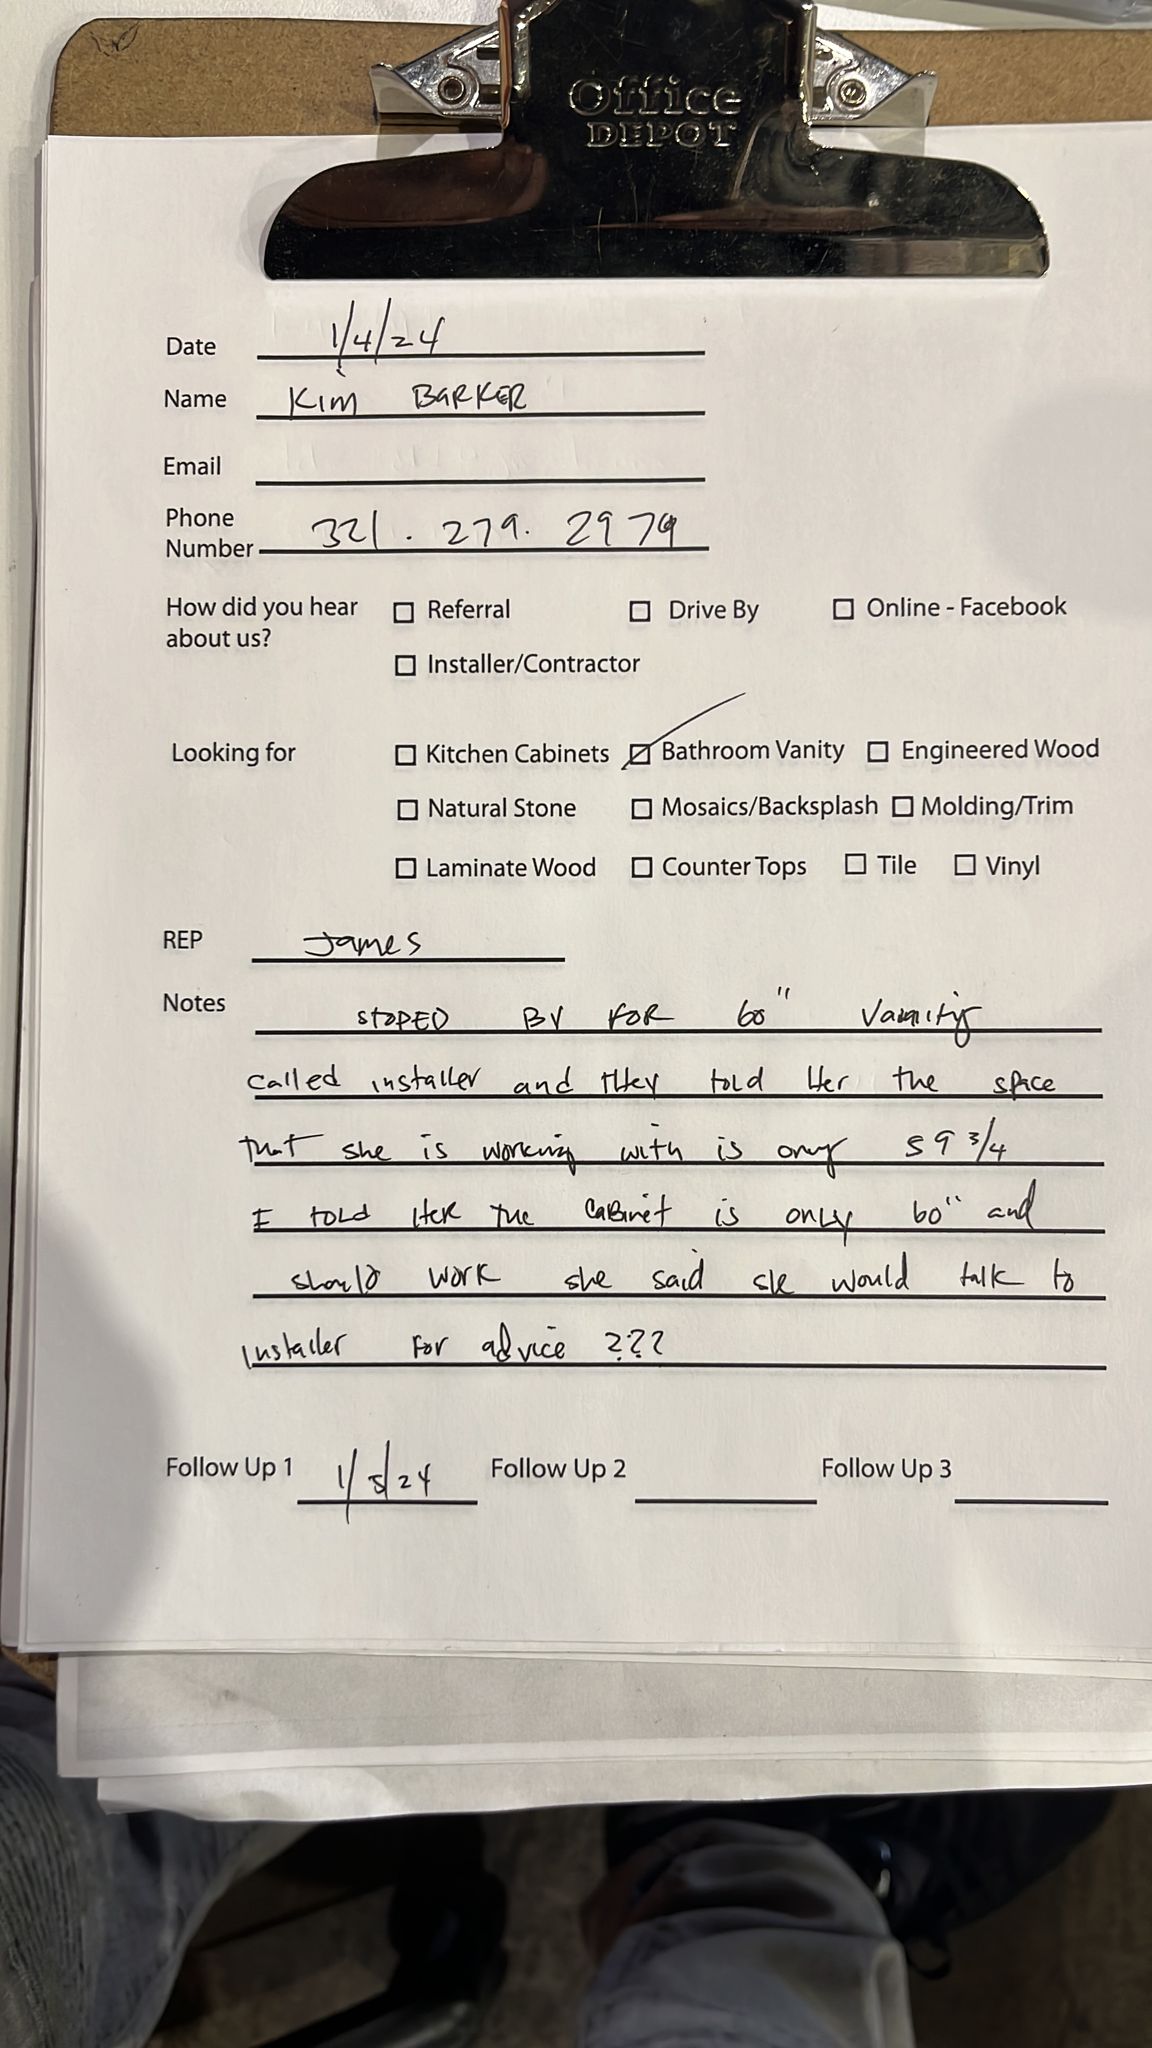 Office
DEPOT
Date 1/4/24
Name Kim BARKER
Email
Phone
Number 321. 279. 2979
How did you hear
about us?
☐ Referral ☐ Drive By ☐ Online - Facebook
☐ Installer/Contractor
Looking for ☐ Kitchen Cabinets ☑ Bathroom Vanity ☐ Engineered Wood
☐ Natural Stone ☐ Mosaics/Backsplash ☐ Molding/Trim
☐ Laminate Wood ☐ Counter Tops ☐ Tile ☐ Vinyl
REP James
Notes STOPED BY FOR 60" Vanity
called installer and they told Her the space
that she is working with is only 59 3/4
I TOLD HER THE CABINET is only 60" and
should work she said she would talk to
Installer For advice ???
Follow Up 1 1/5/24 Follow Up 2 Follow Up 3